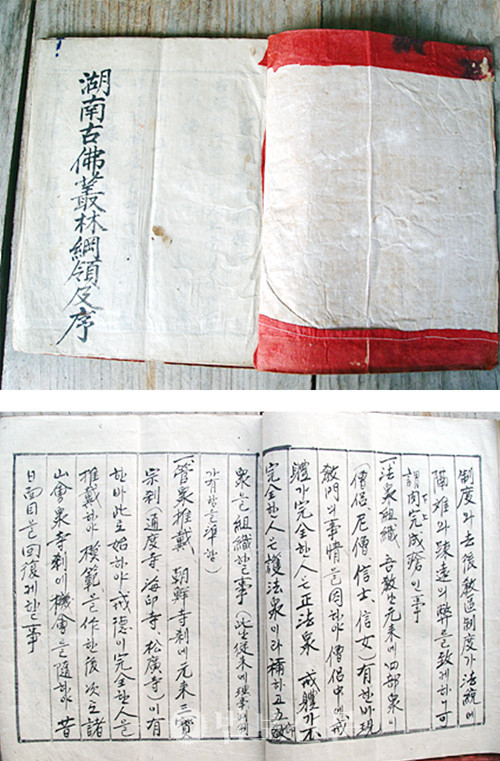 湖南古佛叢林綱領及序
制度와 去後敎區制度가 法統에
隔離와 疎遠의 弊를 致게하니 可
完成 事
一、法衆組織 吾敎난 元來에 四部衆이
(僧侶、尼僧、信士、信女) 有한바 現
敎門의 事情을 因하야 僧侶中에 戒
體가 完全한 人은 正法衆 戒體가 不
完全한 人은 護法衆이라 稱하고 五部
衆을 組織할 事 (此난 從來에 理事判이
가 有함을 準함)
一、管衆推戴 朝鮮寺刹에 元來 三寶
宗刹(通度寺、海印寺、松廣寺)이 有
한바 此로 始하야 戒德이 完全한 人을
推戴하야 模範을 作한 後 次로 諸
山會衆寺刹에 機會를 隨하야 昔
日面目을 回復게할 事